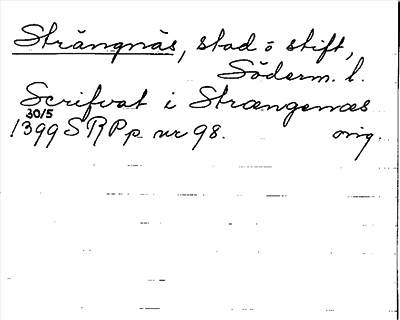 Strängnäs, stad o stift,
Söderm. l.
Scrifvat i Strængenæs
30/5
1399 SRPp nr 98. orig.